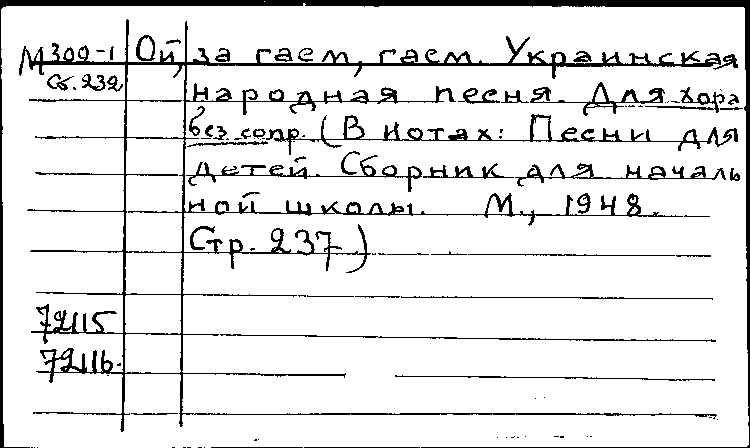 М 300-1 Ой, за гаем, гаем. Украинская
Сб. 232 народная песня. Для хора
без сопр. (В нотах: Песни для
детей. Сборник для началь
ной школы. М., 1948.
Стр. 237)
72115
72116.